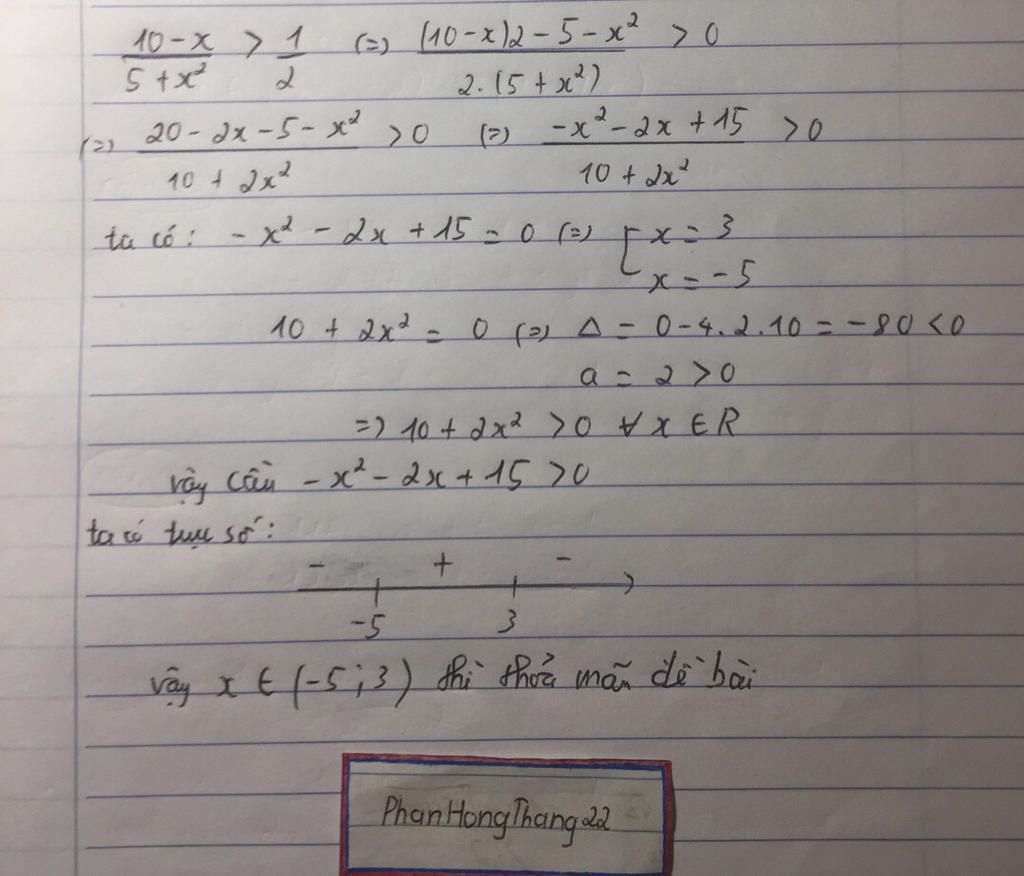 10-x / 5+x² > 1/2 (=) (10-x)2-5-x² / 2.(5+x²) > 0
(=) 20-2x-5-x² / 10+2x² > 0 (=) -x²-2x+15 / 10+2x² > 0
ta có: -x²-2x+15=0 (=) [ x=3
x=-5
10+2x²=0 (=) Δ=0-4.2.10=-80<0
a=2>0
=> 10+2x²>0 ∀x∈R
vậy cần -x²-2x+15>0
ta có trục số:
- + -
-5 3
vậy x∈(-5;3) thì thoả mãn đề bài
PhanHongThang22